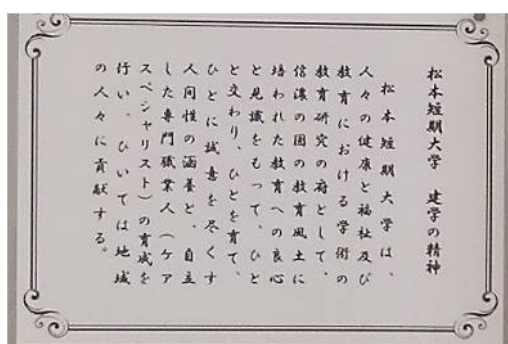 松本短期大学　建学の精神
松本短期大学は、
人々の健康と福祉及び
教育における学術の
教育研究の府として、
信濃の国の教育風土に
培われた教育への良心
と見識をもって、ひと
と交わり、ひとを育て、
ひとに誠意を尽くす
人間性の涵養と、自立
した専門職業人（ケア
スペシャリスト）の育成を
行い、ひいては地域
の人々に貢献する。